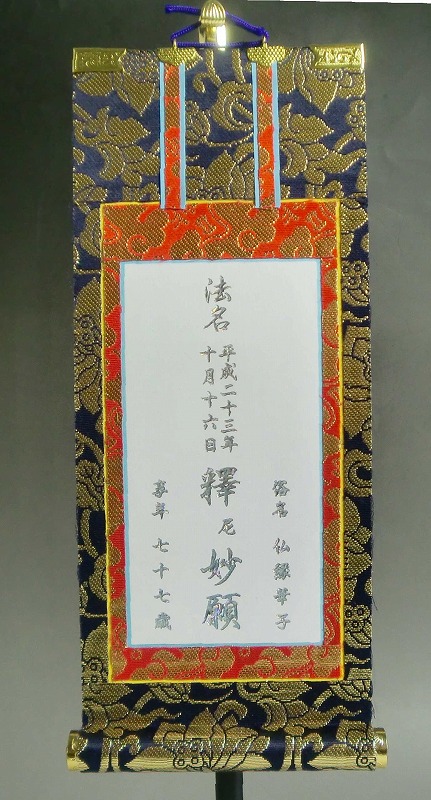 俗名 仏縁華子
法名
平成二十三年
十月十六日
釋尼妙願
享年 七十七歳